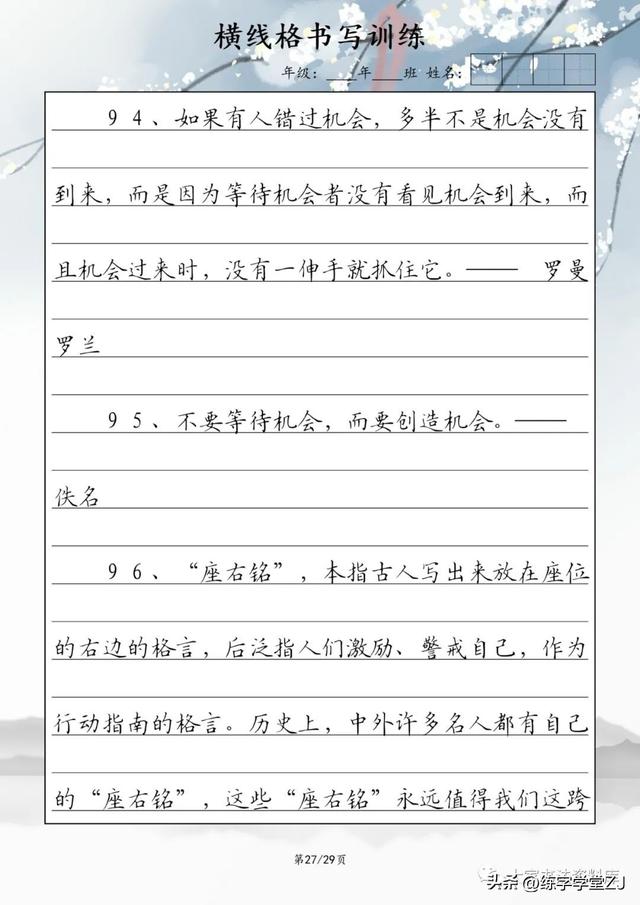 横线格书写训练
年级：____年____班 姓名：
94、如果有人错过机会，多半不是机会没有
到来，而是因为等待机会者没有看见机会到来，而
且机会过来时，没有一伸手就抓住它。—— 罗曼
罗兰
95、不要等待机会，而要创造机会。——
佚名
96、“座右铭”，本指古人写出来放在座位
的右边的格言，后泛指人们激励、警戒自己，作为
行动指南的格言。历史上，中外许多名人都有自己
的“座右铭”，这些“座右铭”永远值得我们这跨
第27/29页
头条@练字学堂ZJ